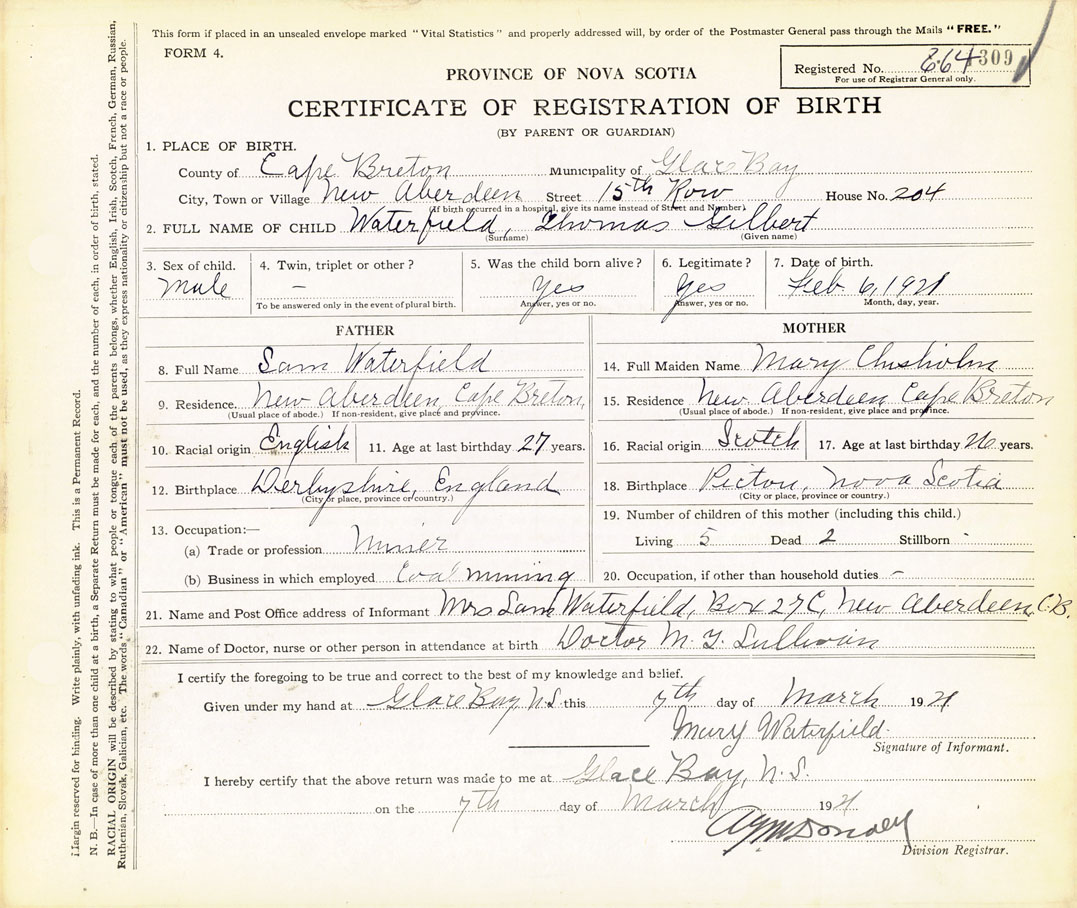 This form if placed in an unsealed envelope marked "Vital Statistics" and properly addressed will, by order of the Postmaster General pass through the Mails "FREE."
FORM 4.
Registered No. 664 309
For use of Registrar General only.
PROVINCE OF NOVA SCOTIA
CERTIFICATE OF REGISTRATION OF BIRTH
(BY PARENT OR GUARDIAN)
1. PLACE OF BIRTH.
County of Cape Breton Municipality of Glace Bay
City, Town or Village New Aberdeen Street 15th Row House No. 204
(If birth occurred in a hospital, give its name instead of Street and Number)
2. FULL NAME OF CHILD Waterfield, Thomas Gilbert
(Surname) (Given name)
3. Sex of child. 4. Twin, triplet or other? 5. Was the child born alive? 6. Legitimate? 7. Date of birth.
Male – Yes Yes Feb 6, 1921
To be answered only in the event of plural birth. Answer, yes or no. Answer, yes or no. Month, day, year.
FATHER
8. Full Name Sam Waterfield
9. Residence. New Aberdeen, Cape Breton,
(Usual place of abode.) If non-resident, give place and province.
10. Racial origin English 11. Age at last birthday 27 years.
12. Birthplace Derbyshire, England
(City or place, province or country.)
13. Occupation:—
(a) Trade or profession Miner
(b) Business in which employed Coal mining
MOTHER
14. Full Maiden Name Mary Chisholm
15. Residence New Aberdeen Cape Breton
(Usual place of abode.) If non-resident, give place and province.
16. Racial origin Scotch 17. Age at last birthday 26 years.
18. Birthplace Pictou, Nova Scotia
(City or place, province or country.)
19. Number of children of this mother (including this child.)
Living 5 Dead 2 Stillborn -
20. Occupation, if other than household duties –
21. Name and Post Office address of Informant Mrs Sam Waterfield, Box 27C, New Aberdeen, C.B.
22. Name of Doctor, nurse or other person in attendance at birth Doctor M. T. Sullivan
I certify the foregoing to be true and correct to the best of my knowledge and belief.
Given under my hand at Glace Bay N.S. this 7th day of March 1921
Mary Waterfield
Signature of Informant.
I hereby certify that the above return was made to me at Glace Bay, N.S.
on the 7th day of March 1921
Division Registrar.
Margin reserved for binding. Write plainly, with unfading ink. This is a Permanent Record.
N. B.—In case of more than one child at a birth, a Separate Return must be made for each, and the number of each, in order of birth, stated.
RACIAL ORIGIN will be described by stating to what people or tongue each of the parents belongs, whether English, Irish, Scotch, French, German, Russian,
Ruthenian, Slovak, Galician, etc. The words "Canadian" or "American" must not be used, as they express nationality or citizenship but not a race or people.